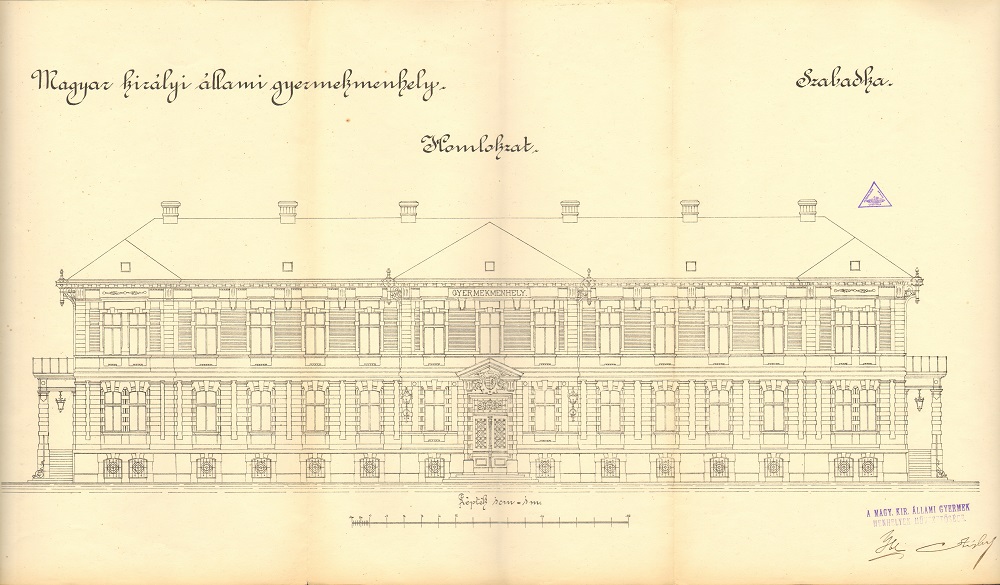 Magyar királyi állami gyermekmenhely.
Szabadka.
Homlokzat.
GYERMEKMENHELY.
Lépték 1cm = 1m.
A MAGY. KIR. ÁLLAMI GYERMEK